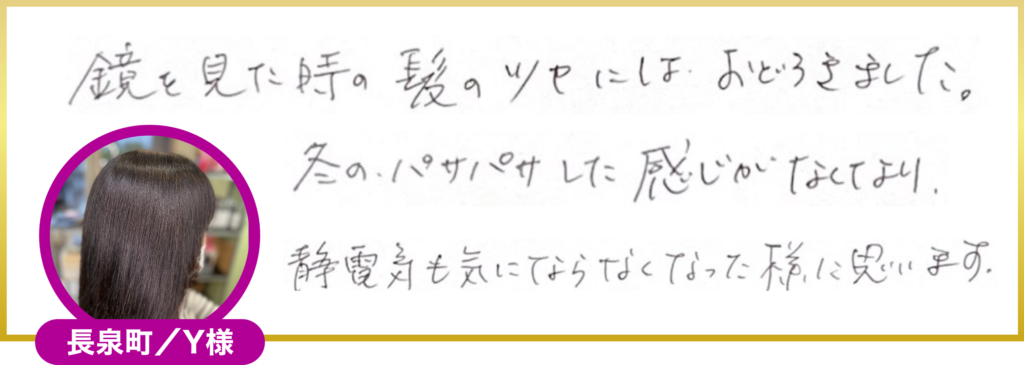 鏡を見た時の髪のツヤにはおどろきました。
冬の、パサパサした感じがなくなり、
静電気も気にならなくなった様に思います。
長泉町／Y様